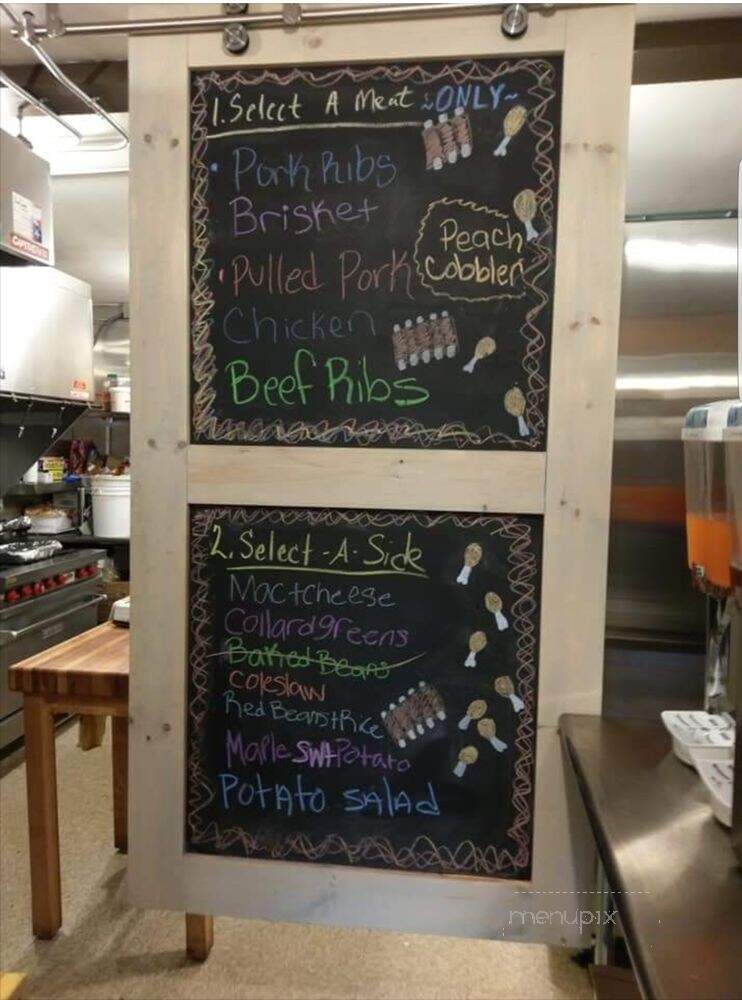 1. Select A Meat ~ONLY~
• Pork Ribs
Brisket
Peach
Cobbler
• Pulled Pork
Chicken
Beef Ribs
2. Select-A-Side
Mac+cheese
Collard greens
Baked Beans
coleslaw
Red Beans+Rice
Maple Swt Potato
Potato salad
menupix